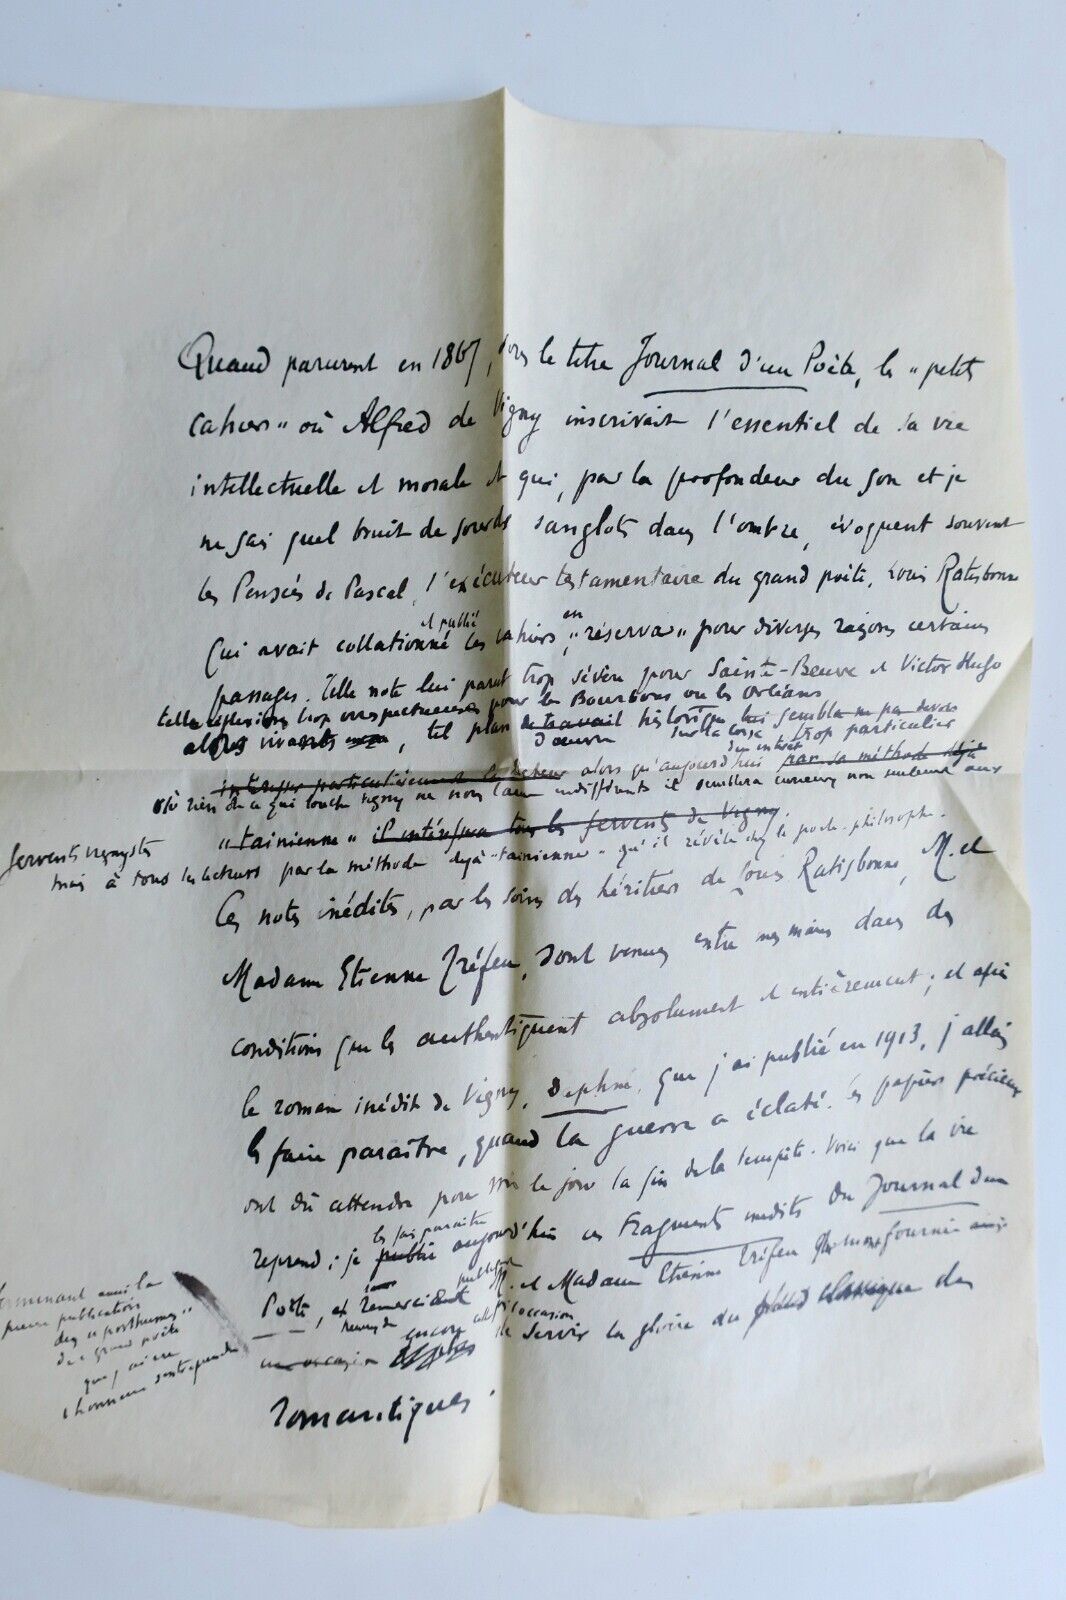 Quand parurent en 1867, sous le titre Journal d'un Poète, les "petits
cahiers" où Alfred de Vigny inscrivait l'essentiel de sa vie
intellectuelle et morale et qui, par la profondeur du son et je
ne sais quel bruit de sourds sanglots dans l'ombre, évoquent souvent
les Pensées de Pascal, l'exécuteur testamentaire du grand poète, Louis Ratisbonne
et publié
en
qui avait collationné les cahiers, "réserva" pour diverses raisons certains
passages. Telle note lui parut trop sévère pour Sainte-Beuve et Victor Hugo
telles réflexions trop irrespectueuses pour les Bourbons ou les Orléans
alors vivants, tel plan de travail historique lui sembla ne pas devoir
d'œuvre sur la Corse trop particulier
d'un intérêt
intéresser particulièrement le lecteur alors qu'aujourd'hui par sa méthode déjà
où rien de ce qui touche Vigny ne nous laisse indifférents il semblera curieux non seulement aux
"tainienne" il intéressera tous les fervents de Vigny.
fervents vignystes
mais à tous les lecteurs par la méthode déjà "tainienne" qu'il révèle chez le poète-philosophe.
Ces notes inédites, par les soins des héritiers de Louis Ratisbonne, M. et
Madame Etienne Tréfeu, sont venues entre mes mains dans des
conditions qui les authentiquent absolument et entièrement ; et après
le roman inédit de Vigny, Daphné, que j'ai publié en 1913, j'allais
les faire paraître, quand la guerre a éclaté. Ces papiers précieux
ont dû attendre pour voir le jour la fin de la tempête. Voici que la vie
les fais paraître
reprend : je publie aujourd'hui ces Fragments inédits du Journal d'un
Poète, et remerciant M. et Madame Etienne Tréfeu de m'avoir fourni ainsi
une occasion encore l'occasion de servir la gloire du grand classique des
romantiques.
terminant ainsi la
pieuse publication
des "posthumes"
de ce grand poète
que j'ai eu
l'honneur d'entreprendre